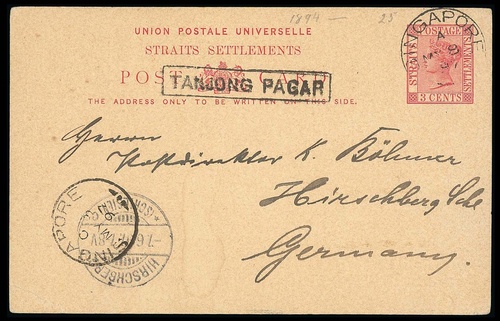 1894 — 25
UNION POSTALE UNIVERSELLE
STRAITS SETTLEMENTS
POST CARD
TANJONG PAGAR
THE ADDRESS ONLY TO BE WRITTEN ON THIS SIDE.
STRAITS POSTAGE SETTLEMENTS
3 CENTS
SINGAPORE
A
Herrn
Postdirektor K. Böhmer
Hirschberg Schl.
Germany.
SINGAPORE
HIRSCHBERG